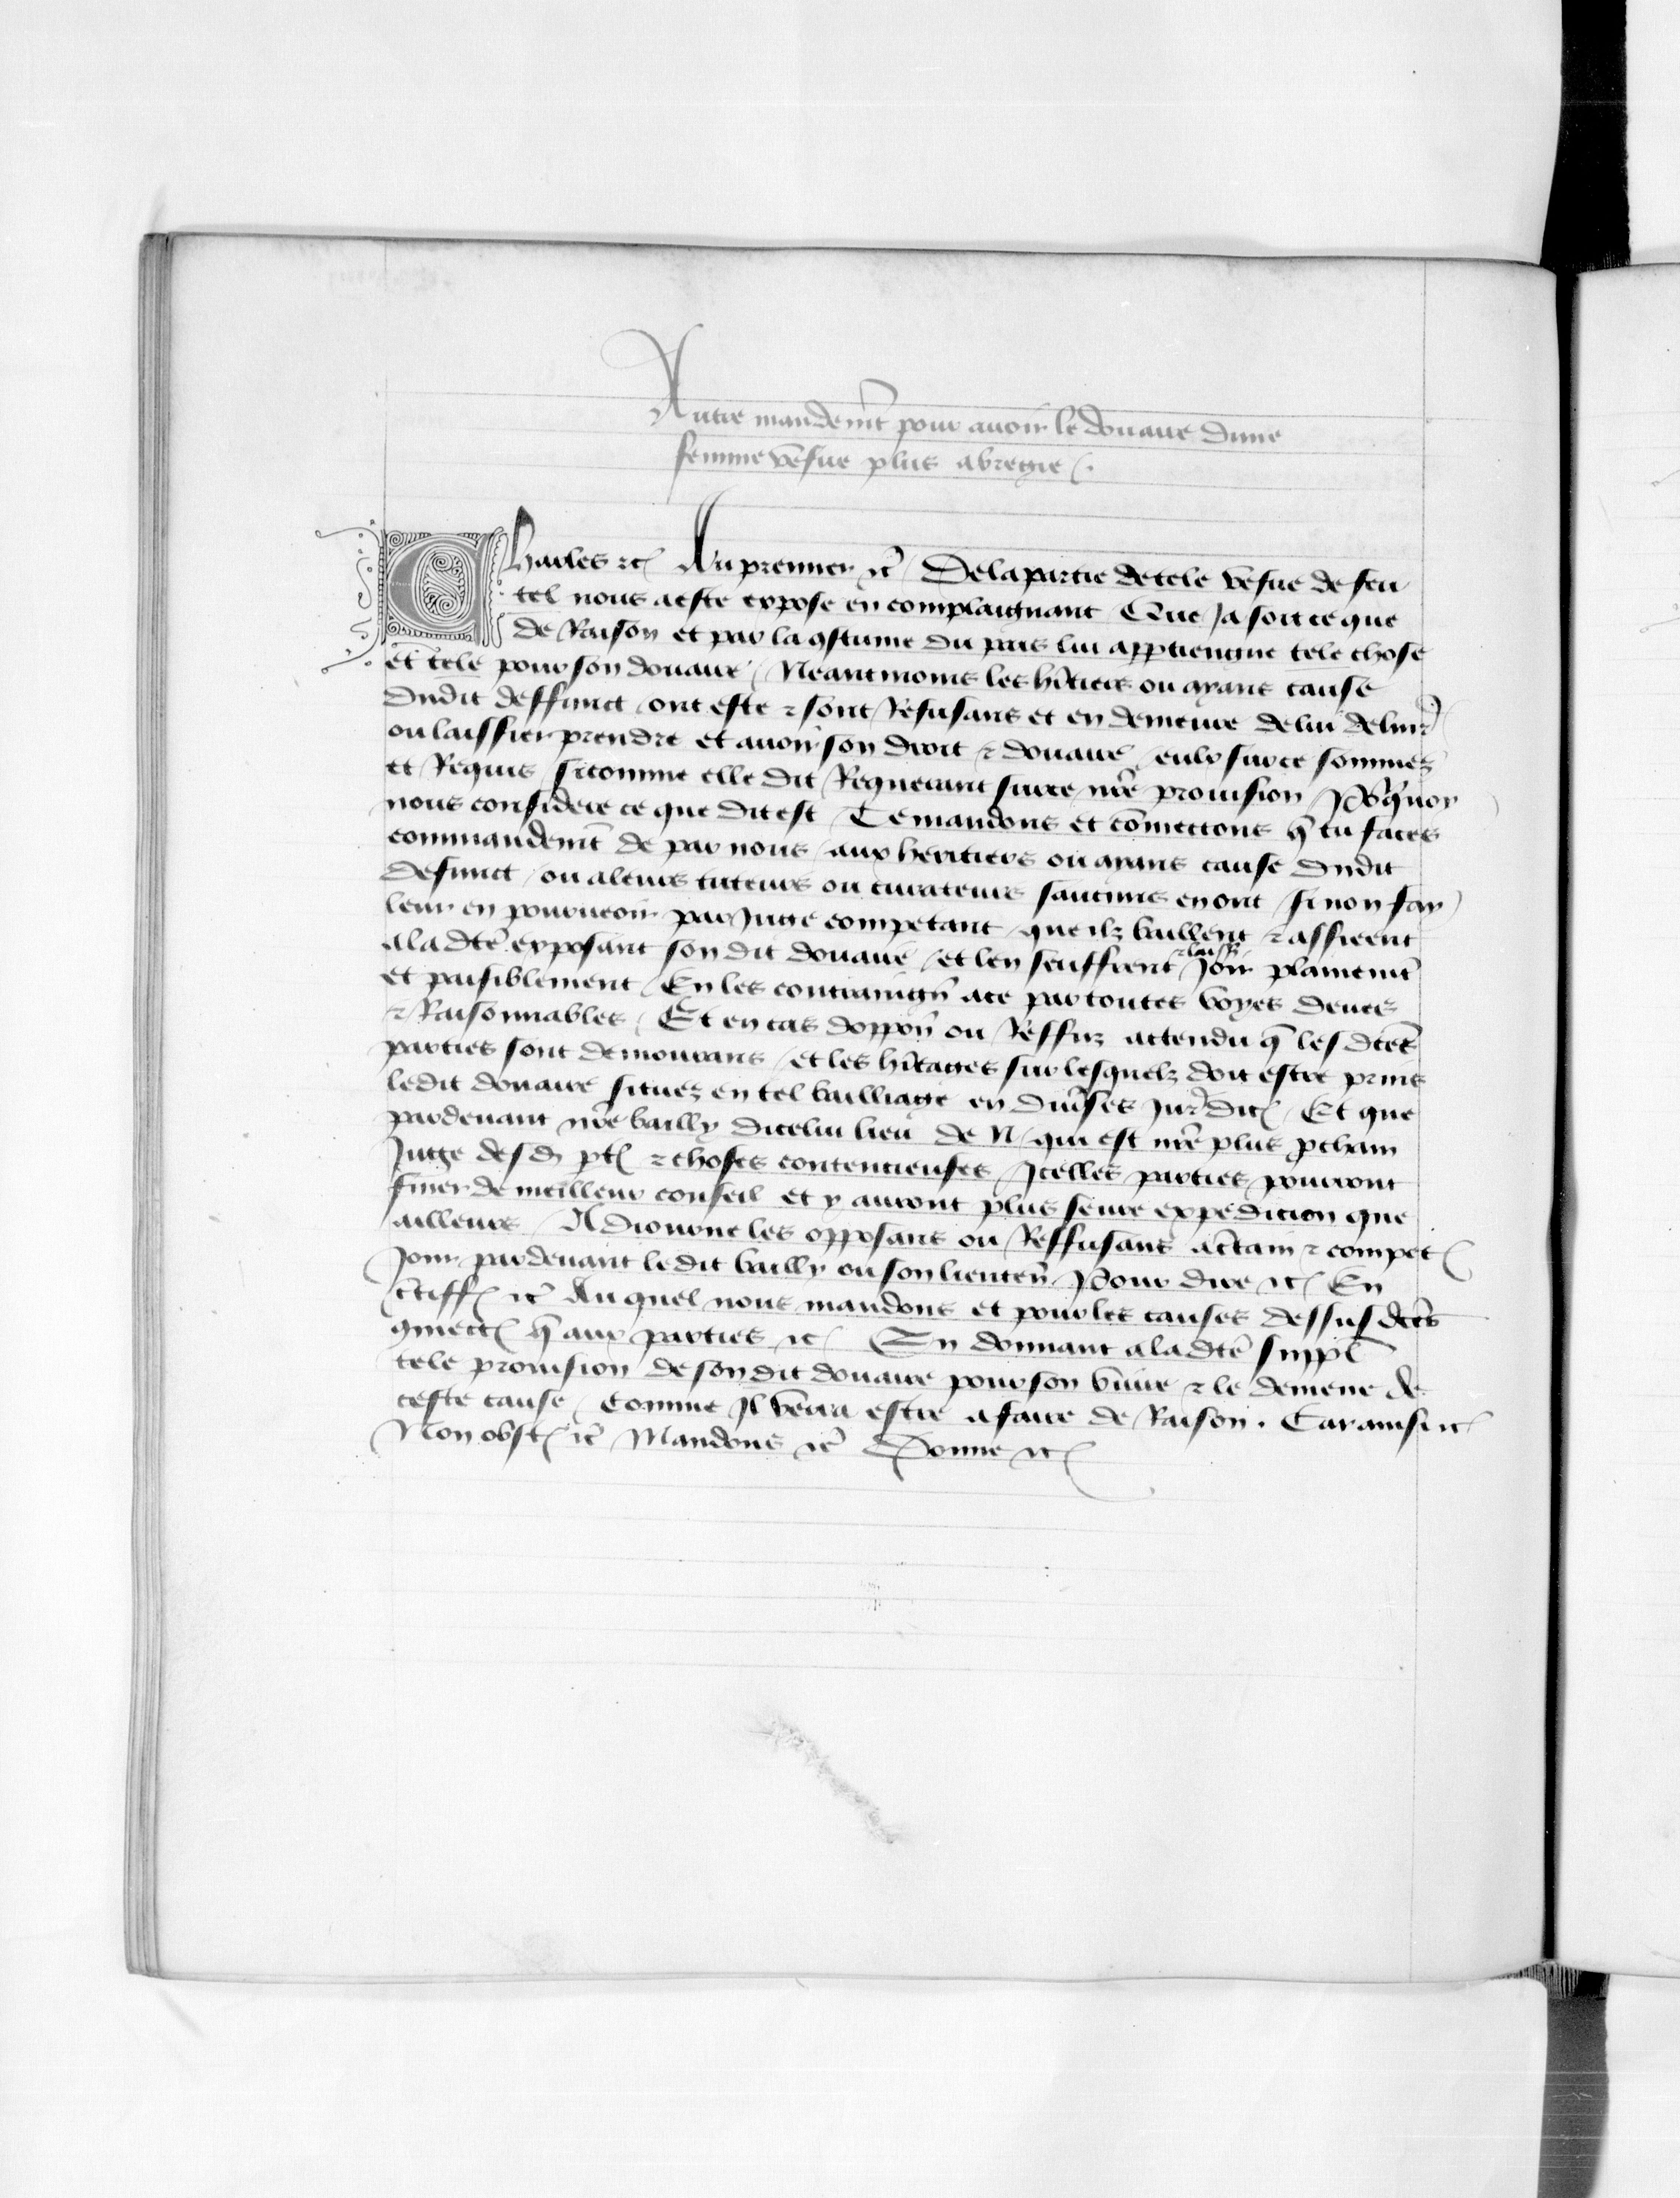 Autre mandemẽt pour auoir le douaire dune
femme vefue plus abregie
Charles ⁊c̃ Au premier ⁊c̃ De la partie de tele vefue de feu
tel nous a este expose en complaignant Que Ja soit ce que
de Raison et par la ꝯstume du pais lui apptiengne tele chose
et tele pour son douaire / Neantmoins les hĩtiers ou ayans cause
dudit deffunct ont este ⁊ sont Refusans et en demeure de lui deliur̃
ou laissier prendre et auoir son droit ⁊ douaire / eulx sur ce sommez
et Requis / sicomme elle dit Requerant sur ce nr̃e prouision / Pourquoy
nous considere ce que dit est / Te mandons et cõmettons q̃ tu faces
commandemẽt de par nous / aux heritiers ou ayans cause dudit
defunct / ou a leurs tuteurs ou curateurs sauciuns en ont / si non fay
leur en pourueoir par Juge competant / que ilz baillent ⁊ assieent
a la dc̃te exposant son dit douaire / et len seuffrent ⁊ laiss̃ Joir plainemẽt
et paisiblement / En les contraingñ a ce par toutes voyes deues
⁊ Raisonnables / Et en cas doppoñ ou Reffuz attendu q̃ les dc̃tes
parties sont demourans / et les hĩtages sur lesquelz doit estre prins
ledit douaire situez en tel bailliage en diũses Jur̃dic̃ / Et que
pardeuant nr̃e bailly dicelui lieu de N / qui est nr̃e plus ꝓchain
Juge desd̃ pt̃ ⁊ choses contencieuses / Jcelles parties pourront
finer de meilleur conseil et y auront plus seure expedicion que
ailleurs / Adiourne les opposans ou Reffusans a c̃tain ⁊ compet̃
Jour pardeuant ledit bailly ou son lieuteñ / Pour dire ⁊c̃ En
c̃tiff̃ ⁊c̃ Au quel nous mandons et pour les causes dessus dc̃tes
ꝯmect̃ q̃ aux parties ⁊c̃ / En donnant a la dc̃te suppl̃
tele prouision de son dit douaire pour son viure ⁊ le demene de
ceste cause / comme Jl verra estre a faire de Raison . Car ainsi ⁊c̃
Non obst̃ ⁊c̃ Mandons ⁊c̃ Donne ⁊c̃